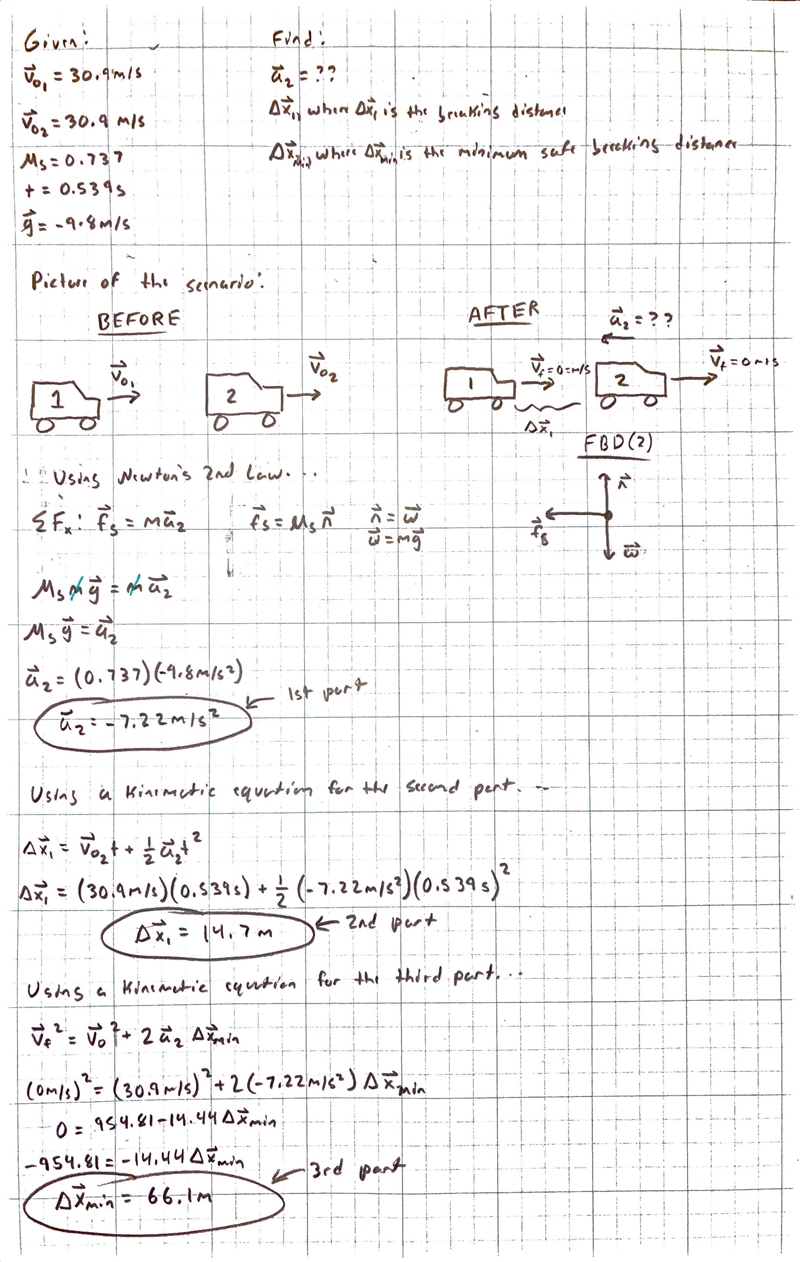 Given:
V⃗o₁ = 30.9 m/s
V⃗o₂ = 30.9 m/s
Ms = 0.737
t = 0.539s
g⃗ = -9.8 m/s
Find:
a⃗₂ = ??
Δx⃗₁, where Δx⃗₁ is the breaking distance
Δx⃗min, where Δx⃗min is the minimum safe breaking distance
Picture of the scenario:
BEFORE
1
V⃗o₁
2
V⃗o₂
AFTER
1
V⃗f = 0 = m/s
Δx⃗₁
a⃗₂ = ??
2
V⃗f = 0 m/s
FBD(2)
n⃗
f⃗s
w⃗
Using Newton's 2nd Law...
ΣFx: f⃗s = ma⃗₂
f⃗s = Ms n⃗
n⃗ = w⃗
w⃗ = mg⃗
Ms m g⃗ = m a⃗₂
Ms g⃗ = a⃗₂
a⃗₂ = (0.737)(-9.8 m/s²)
a⃗₂ = -7.22 m/s² ← 1st part
Using a kinematic equation for the second part...
Δx⃗₁ = V⃗o₂t + ½ a⃗₂t²
Δx⃗₁ = (30.9 m/s)(0.539s) + ½ (-7.22 m/s²)(0.539 s)²
Δx⃗₁ = 14.7 m ← 2nd part
Using a kinematic equation for the third part...
V⃗f² = V⃗o² + 2a⃗₂ Δx⃗min
(0 m/s)² = (30.9 m/s)² + 2(-7.22 m/s²) Δx⃗min
0 = 954.81 - 14.44 Δx⃗min
-954.81 = -14.44 Δx⃗min
Δx⃗min = 66.1 m ← 3rd part